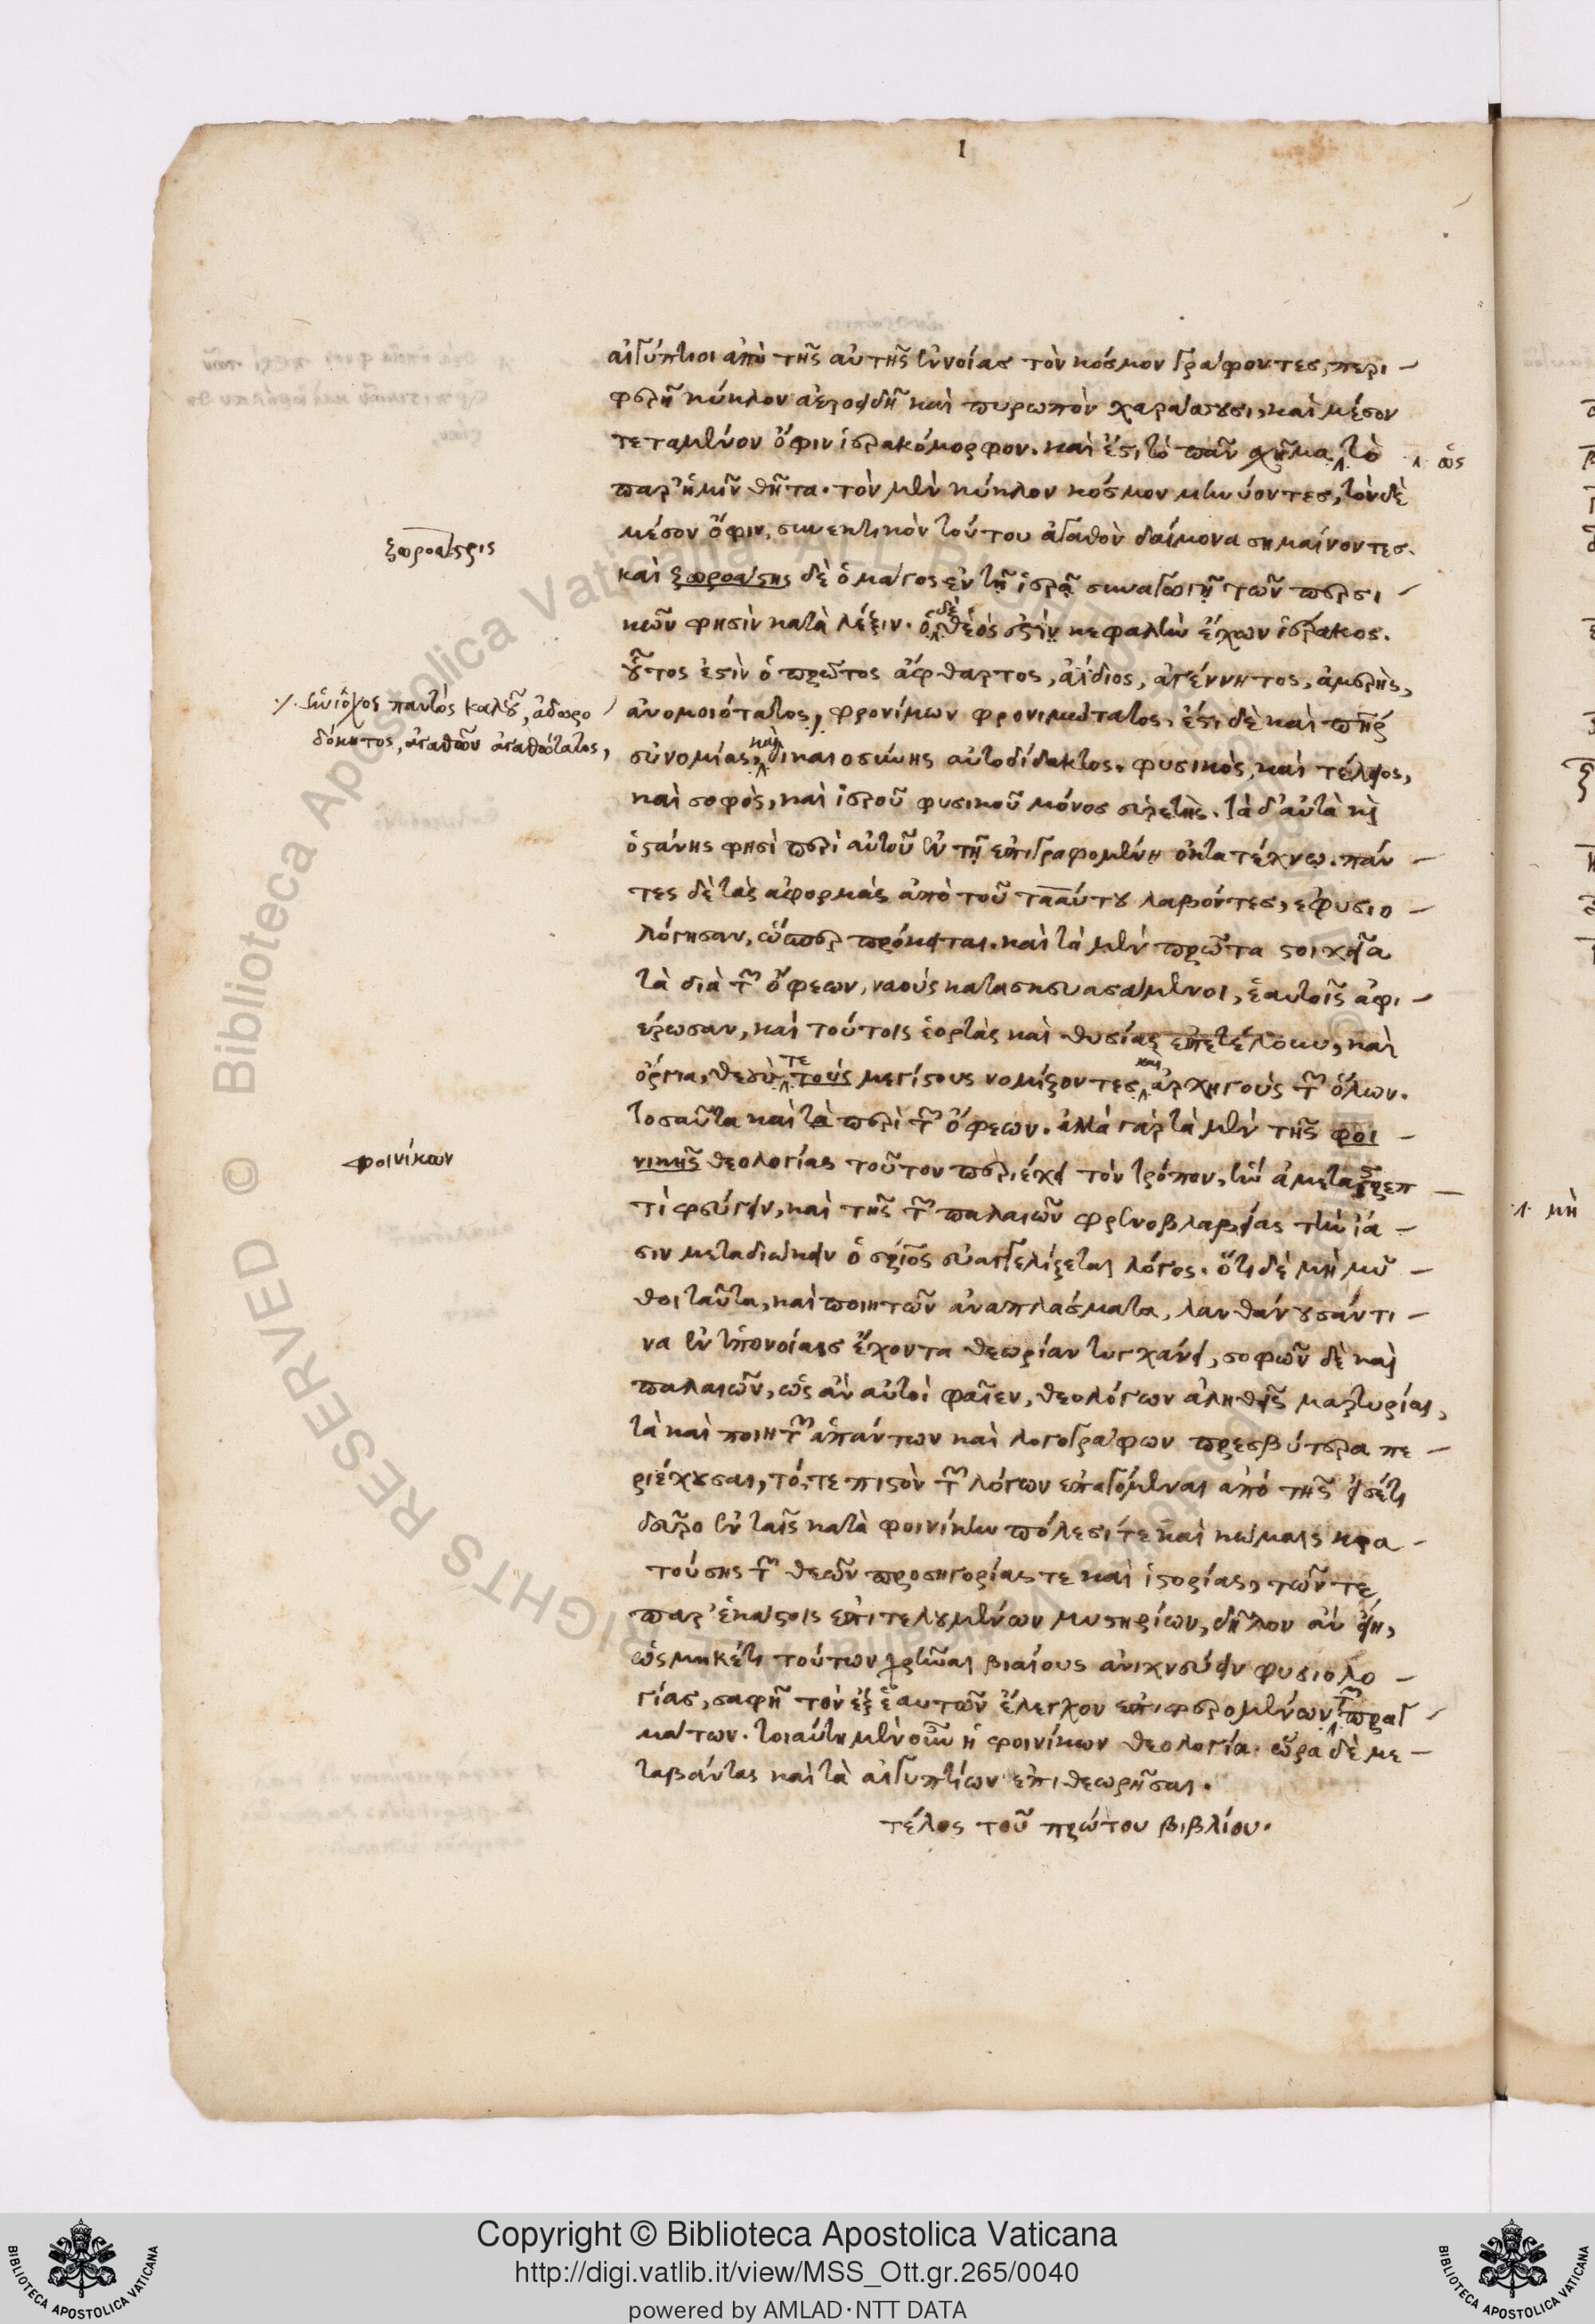 1
αἰγύπτιοι ἀπὸ τῆς αὐτῆς ἐννοίας τὸν κόσμον γράφοντες, περι-
φερῆ κύκλον ἀεροειδῆ καὶ πυρωπὸν χαράσσουσι, καὶ μέσον
τεταμένον ὄφιν ἱερακόμορφον. καὶ ἔστι τὸ πᾶν σχῆμα τὸ
ὡς
παρ' ἡμῖν θῆτα. τὸν μὲν κύκλον κόσμον μηνύοντες, τὸν δὲ
μέσον ὄφιν, συνεκτικὸν τούτου ἀγαθὸν δαίμονα σημαίνοντες.
ζωροάστρις
καὶ ζωροάστρης δὲ ὁ μάγος ἐν τῇ ἱερᾷ συναγωγῇ τῶν περσι-
κῶν φησὶν κατὰ λέξιν. ὁ δὲ θεός ἐστὶν κεφαλὴν ἔχων ἱέρακος.
οὗτος ἐστὶν ὁ πρῶτος ἄφθαρτος, ἀίδιος, ἀγέννητος, ἀμερὴς,
ἡνίοχος παντὸς καλοῦ, ἀδωρο
δόκητος, ἀγαθῶν ἀγαθώτατος,
ἀνομοιότατος, φρονίμων φρονιμώτατος. ἔστι δὲ καὶ πατὴρ
εὐνομίας, καὶ δικαιοσύνης αὐτοδίδακτος. φυσικὸς, καὶ τέλειος,
καὶ σοφὸς, καὶ ἱεροῦ φυσικοῦ μόνος εὑρετής. τὰ δ' αὐτὰ καὶ
ὀστάνης φησὶ περὶ αὐτοῦ ἐν τῇ ἐπιγραφομένῃ ὀκτατέχνω. πάν-
τες δὲ τὰς ἀφορμὰς ἀπὸ τοῦ τααύτου λαβόντες, ἐφυσιο-
λόγησαν, ὥσπερ πρόκειται. καὶ τὰ μὲν πρῶτα στοιχεῖα
τὰ διὰ τῶν ὄφεων, ναοὺς κατασκευασάμενοι, ἑαυτοῖς ἀφι-
έρωσαν, καὶ τούτοις ἑορτὰς καὶ θυσίας ἐπετέλουν, καὶ
ὄργια, θεοὺς τε τοὺς μεγίστους νομίζοντες καὶ ἀρχηγοὺς τῶν ὅλων.
τοσαῦτα καὶ τὰ περὶ τῶν ὄφεων. ἀλλὰ γὰρ τὰ μὲν τῆς φοι-
φοινίκων
νικης θεολογίας τοῦτον περιέχει τὸν τρόπον, ἣν ἀμεταστρεπ-
τὶ φεύγειν, καὶ τῆς τῶν παλαιῶν φρενοβλαβείας τὴν ἴα-
μὴ
σιν μεταδιώκειν ὁ σωτήριος εὐαγγελίζεται λόγος. ὅτι δὲ μὴ μῦ-
θοι ταῦτα, καὶ ποιητῶν ἀναπλάσματα, λανθάνουσάν τι-
να ἐν ὑπονοίαις ἔχοντα θεωρίαν τυγχάνει, σοφῶν δὲ καὶ
παλαιῶν, ὡς ἂν αὐτοὶ φαῖεν, θεολόγων ἀληθεῖς μαρτυρίαι,
τὰ καὶ ποιητῶν ἁπάντων καὶ λογογράφων πρεσβύτερα πε-
ριέχουσαι, τό, τε πιστὸν τῶν λόγων ἐπαγόμεναι ἀπὸ τῆς εἰσέτι
δεῦρο ἐν ταῖς κατὰ φοινίκην πόλεσί τε καὶ κώμαις κρα-
τούσης τῶν θεῶν προσηγορίας τε καὶ ἱστορίας, τῶν τε
παρ' ἑκάστοις ἐπιτελουμένων μυστηρίων, δῆλον ἂν εἴη,
ὡς μηκέτι τούτων χρῆναι βιαίους ἀνιχνεύειν φυσιολο-
γίας, σαφῆ τὸν ἐξ ἑαυτῶν ἔλεγχον ἐπιφερομένων τῶν πραγ-
μάτων. τοιαύτη μὲν οὖν ἡ φοινίκων θεολογία. ὥρα δὲ με-
ταβάντας καὶ τὰ αἰγυπτίων ἐπιθεωρῆσαι.
τέλος τοῦ πρώτου βιβλίου.
Copyright © Biblioteca Apostolica Vaticana
http://digi.vatlib.it/view/MSS_Ott.gr.265/0040
powered by AMLAD·NTT DATA
BIBLIOTECA APOSTOLICA VATICANA
BIBLIOTECA APOSTOLICA VATICANA